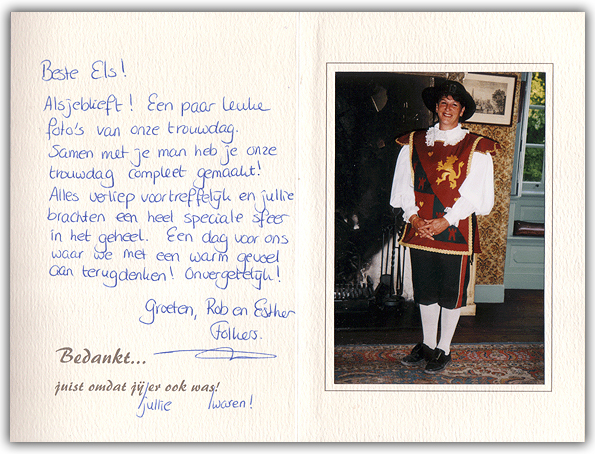 Beste Els!
Alsjeblieft! Een paar leuke
foto's van onze trouwdag.
Samen met je man heb je onze
trouwdag compleet gemaakt!
Alles verliep voortreffelijk en jullie
brachten een heel speciale sfeer
in het geheel. Een dag voor ons
waar we met een warm gevoel
aan terugdenken! Onvergetelijk!
Groeten, Rob en Esther
Folkers.
Bedankt...
juist omdat jij er ook was!
jullie waren!